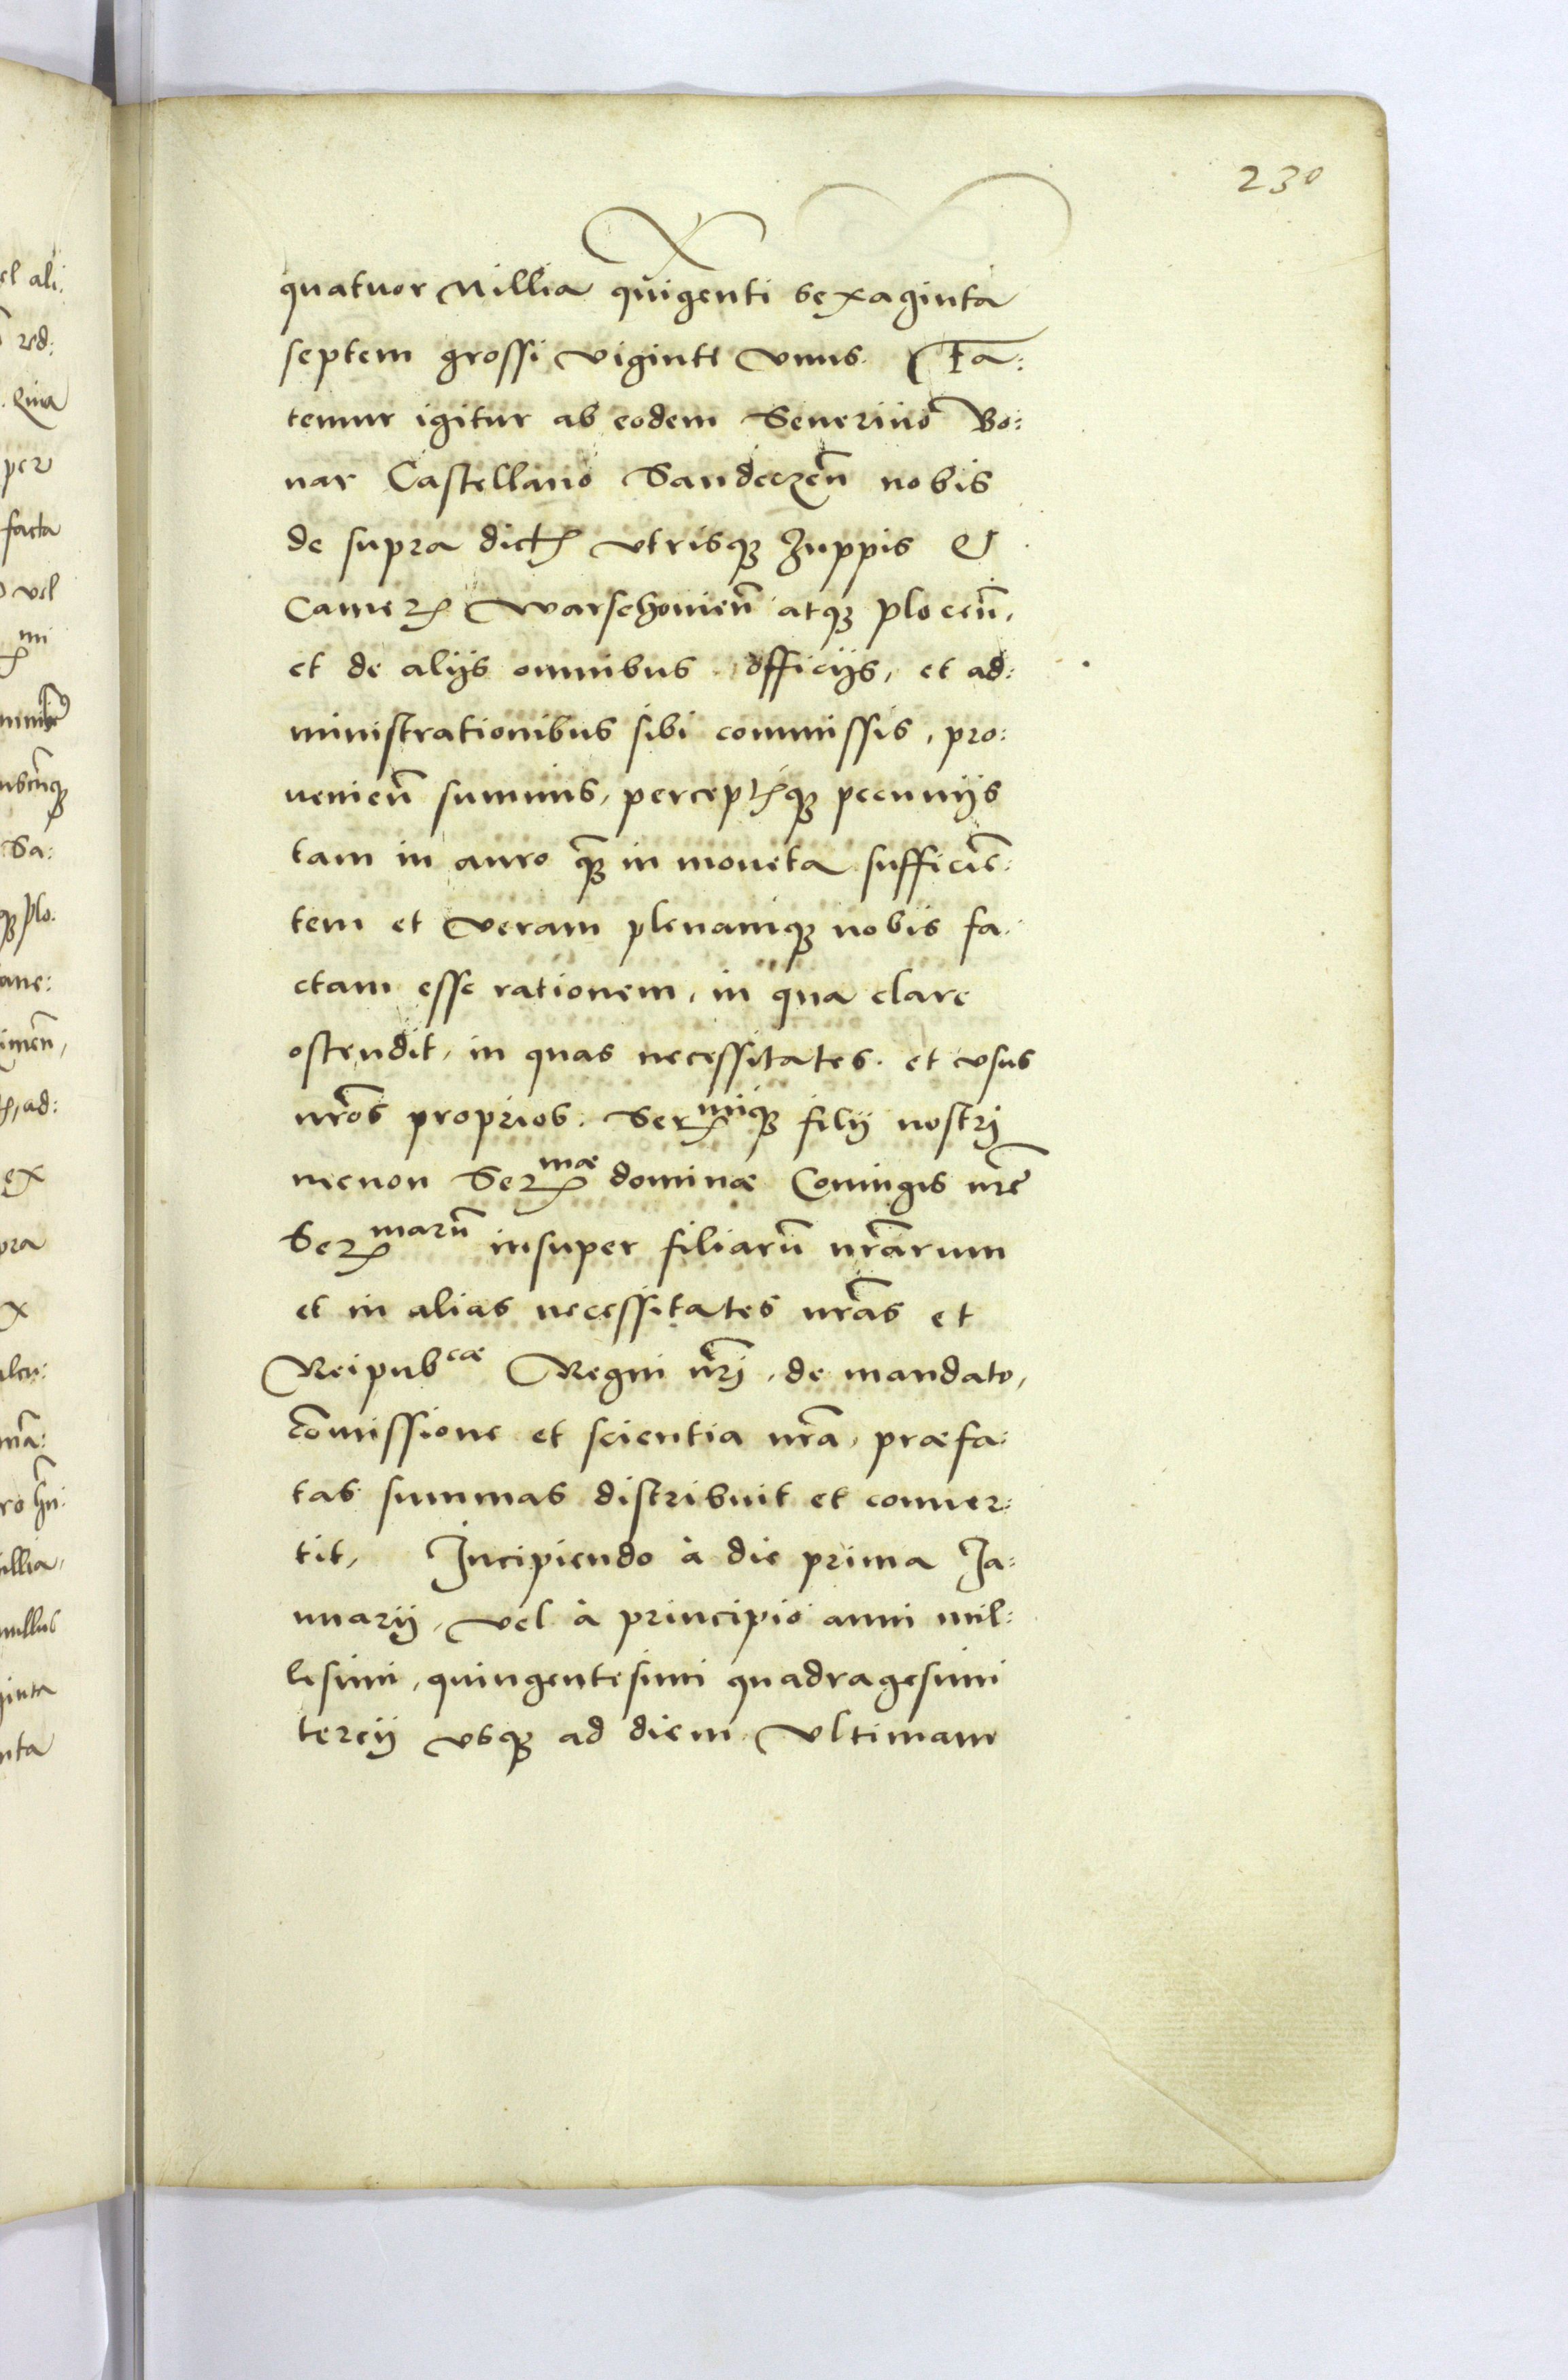 230
quatuor Millia quīgenti sexaginta
septem grossi viginti vnus. Fa:
temur igitur ab eodem Seuerino Bo:
nar Castellano Sandeczeñ nobis
de supra dictꝭ vtrisqꝫ Zuppis et
Camerꝭ Warschouieñ atqꝫ ploceñ,
et de alijs omnibus officijs, et ad:
ministrationibus sibi commissis, pro:
uenieñ summis, perceptꝭqꝫ pecunijs
tam in auro qꝫ in moneta sufficiē:
tem et veram plenamqꝫ nobis fa:
ctam esse rationem, in qua clare
ostendit, in quas necessitates. et vsus
nr̄os proprios. Serᵐⁱqꝫ filij nostrj
necnon Serᵐᵃᵉ dominæ Coniugis nr̄ē
Serᵐᵃʳū insuper filiarū nr̄arum
et in alias necessitates nr̄as et
Reipubᶜᵃᵉ Regni nr̄j, de mandato,
cōmissione et scientia nr̄a, præfa:
tas summas distribuit et conuer:
tit, Incipiendo à die prima Ja:
nuarij, vel à principio anni mil:
lesimi, quingentesimi quadragesimi
tercij vsqꝫ ad diem vltimam